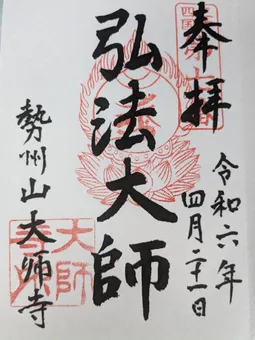 奉拝
令和六年
四月二十一日
弘法大師
勢州山大師寺
大師